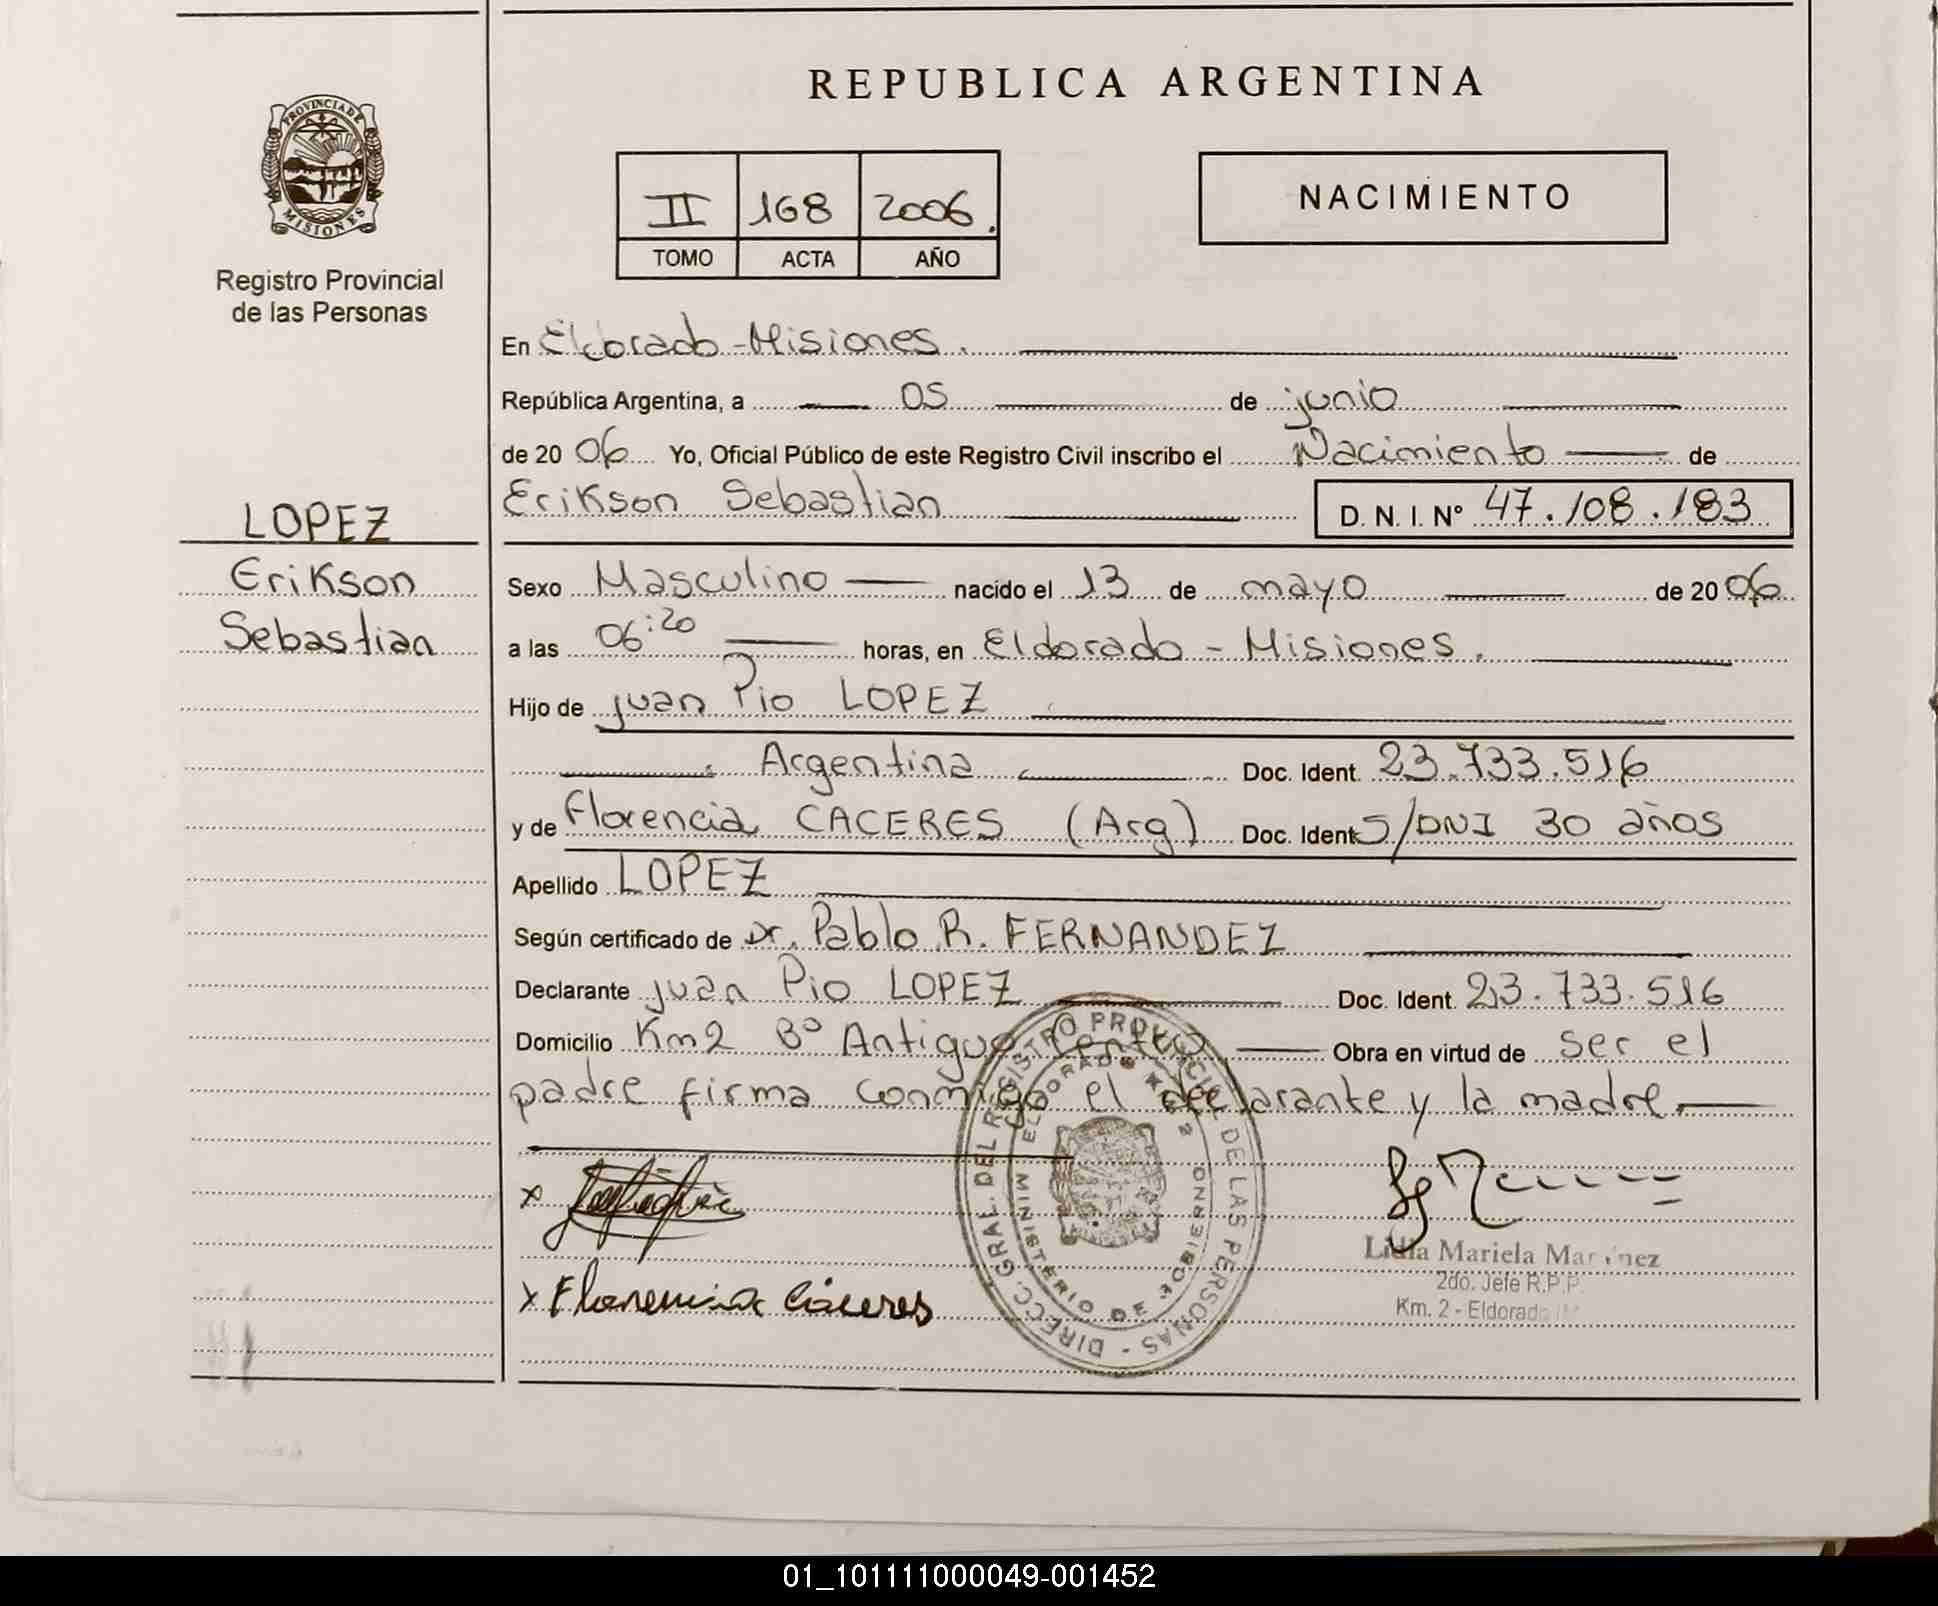 REPUBLICA ARGENTINA
PROVINCIA DE
MISIONES
Registro Provincial
de las Personas
II 168 2006.
TOMO ACTA AÑO
NACIMIENTO
En Eldorado - Misiones.
República Argentina, a 05 de junio
de 20 06 Yo, Oficial Público de este Registro Civil inscribo el Nacimiento de
Erikson Sebastian D. N. I. Nº 47.108.183
LOPEZ
Erikson
Sebastian
Sexo Masculino nacido el 13 de mayo de 20 06
a las 06:20 horas, en Eldorado - Misiones.
Hijo de Juan Pio LOPEZ
Argentina Doc. Ident. 23.733.516
y de Florencia CACERES (Arg) Doc. Ident S/DNI 30 años
Apellido LOPEZ
Según certificado de Dr. Pablo R. FERNANDEZ
Declarante Juan Pio LOPEZ Doc. Ident. 23.733.516
Domicilio Km2 Bº Antiguo Obra en virtud de ser el
padre firma conmigo el declarante y la madre
x
x Florencia Cáceres
DIRECC. GRAL. DEL REGISTRO PROVINCIAL DE LAS PERSONAS -
MINISTERIO DE GOBIERNO
ELDORADO KM 2
Lidia Mariela Martinez
2do. Jefe R.P.P.
Km. 2 - Eldorado
01_101111000049-001452